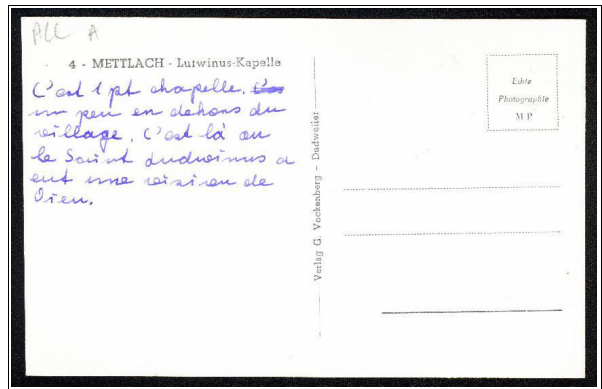 ALL A
4 - METTLACH - Lutwinus-Kapelle
C'est 1 pt chapelle.
un peu en dehors du
village. C'est là ou
le Saint Ludwinus a
eut une vision de
Dieu.
Verlag G. Vockenberg - Dudweiler
Edité
Photographie
M P